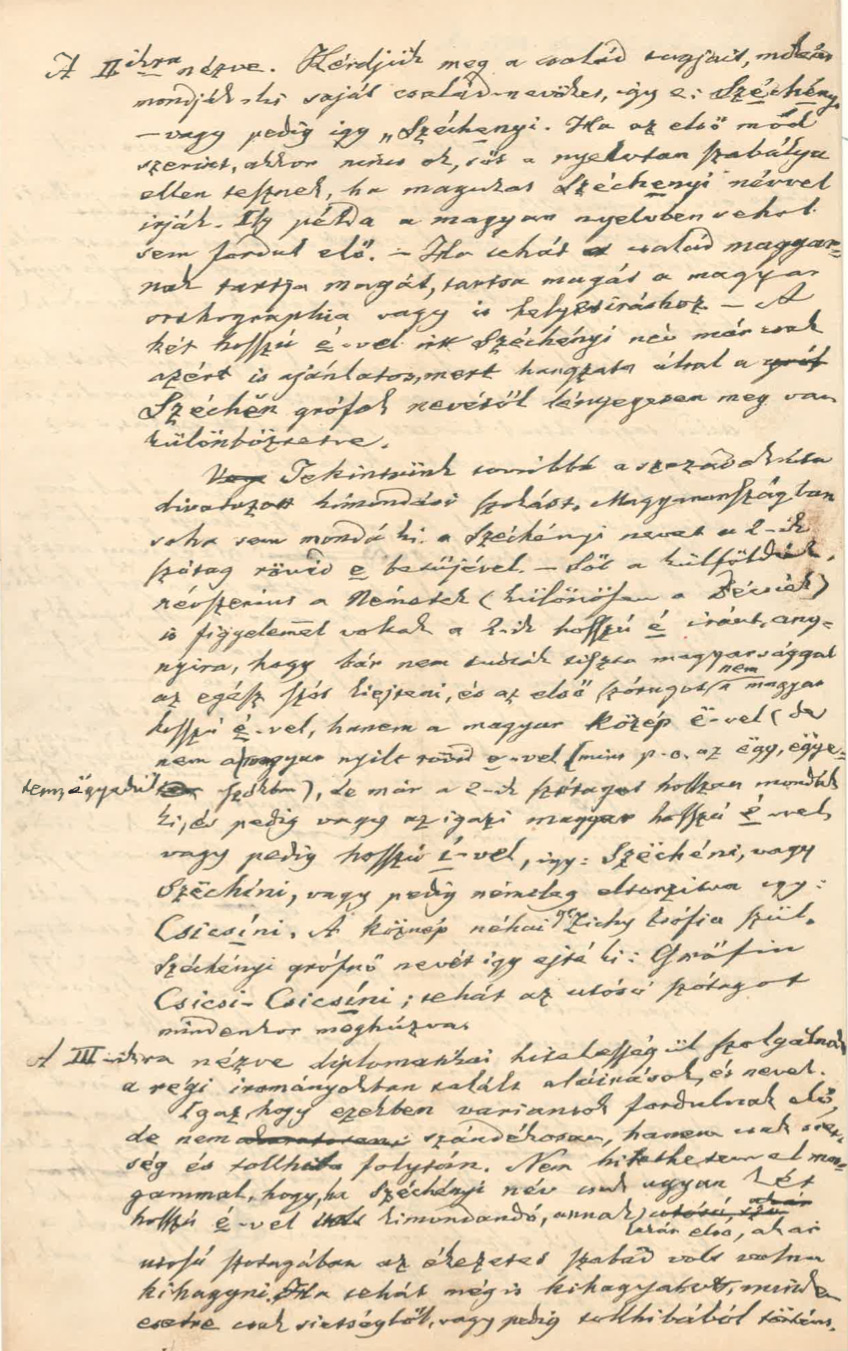 A II ikra nézve. Kérdjük meg a család tagjait,
mondják ki saját család-nevöket, így e: Széchényi
– vagy pedig igy „Széchenyi. Ha az első mód
szerint, akkor nincs ok, sőt a nyelvtan szabálya
ellen tesznek, ha magukat Széchenyi névvel
irják. Ily példa a magyar nyelvben sehol
sem fordul elő. – Ha tehát a család magyar-
nak tartja magát, tartsa magát a magyar
orthographia vagy is helyesiráshoz – A
két hosszú é-vel irt Széchényi név már csak
azért is ajánlatos, mert hangzata által a gróf
Széchén grófok nevétől lényegesen meg van
különböztetve.
Vagy Tekintsünk továbbá a századok óta
divatozott kimondási szokást. Magyarországban
soha sem mondá ki a Széchényi nevet a 2-ik
szótag rövid e betűjével. – Sőt a külföldiek,
névszerint a Németek (különösen a Bécsiek)
is figyelemmel voltak a 2-ik hosszú é iránt, any-
nyira, hogy bár nem tudták tiszta magyarsággal
az egész szót kiejteni, és az első szótagot nem a magyar
hosszú é-vel, hanem a magyar közép ë-vel (de
nem a magyar nyilt rövid e-vel (mint p.o. az ëgy, ëgye-
szókban), de már a 2-ik szótagot hosszan mondták
ki, és pedig vagy az igazi magyar hosszú é-vel,
vagy pedig hosszú í-vel, így: Szëchéni, vagy
Szëchíni, vagy pedig németleg eltorzitva igy:
Csicsíni. A köznép néhai gr Zichy Zsófia szül.
Széchényi grófnő nevét igy ejté ki: Gräfin
Csicsi-Csicsíni; tehát az utósó szótagot
mindenkor meghúzva.
A III-ikra nézve diplomatikai hitelesség ül szolgálnak
a régi irományokban talált aláirások, és nevek.
Igaz, hogy ezekben variansok fordulnak elő,
de nem szándékosan, hanem csak siet-
ség és tollhiba folytán. Nem hitethetem el ma-
gammal, hogy, ha Széchényi név csak ugyan két
hosszú é-vel volt kimondandó, annak utósó akár
akár első, akár
utosó szótagában az ékezetet szabad volt volna
kihagyni. Ha tehát még is kihagyatott, minden
esetre csak sietségből, vagy pedig tollhibából történt.